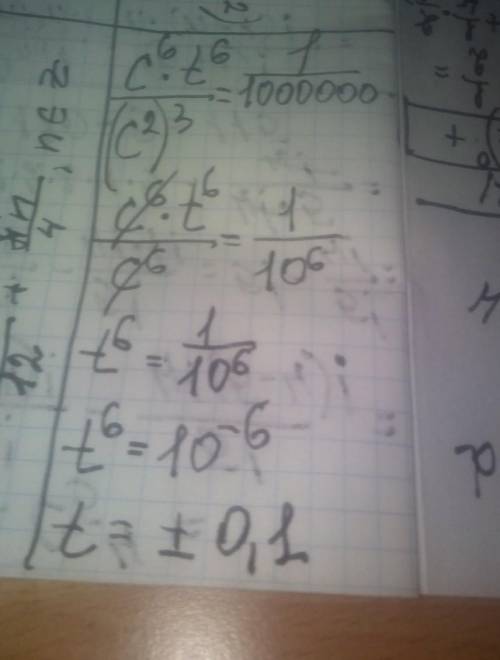 c⁶·t⁶/(c²)³ = 1/1000000
c⁶·t⁶/c⁶ = 1/10⁶
t⁶ = 1/10⁶
t⁶ = 10⁻⁶
t = ± 0,1